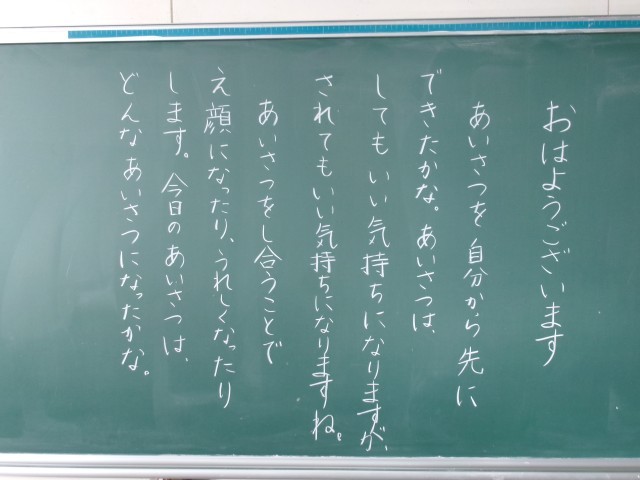 おはようございます
あいさつを自分から先に
できたかな。あいさつは、
してもいい気持ちになりますが、
されてもいい気持ちになりますね。
あいさつをし合うことで
え顔になったり、うれしくなったり
します。今日のあいさつは、
どんなあいさつになったかな。